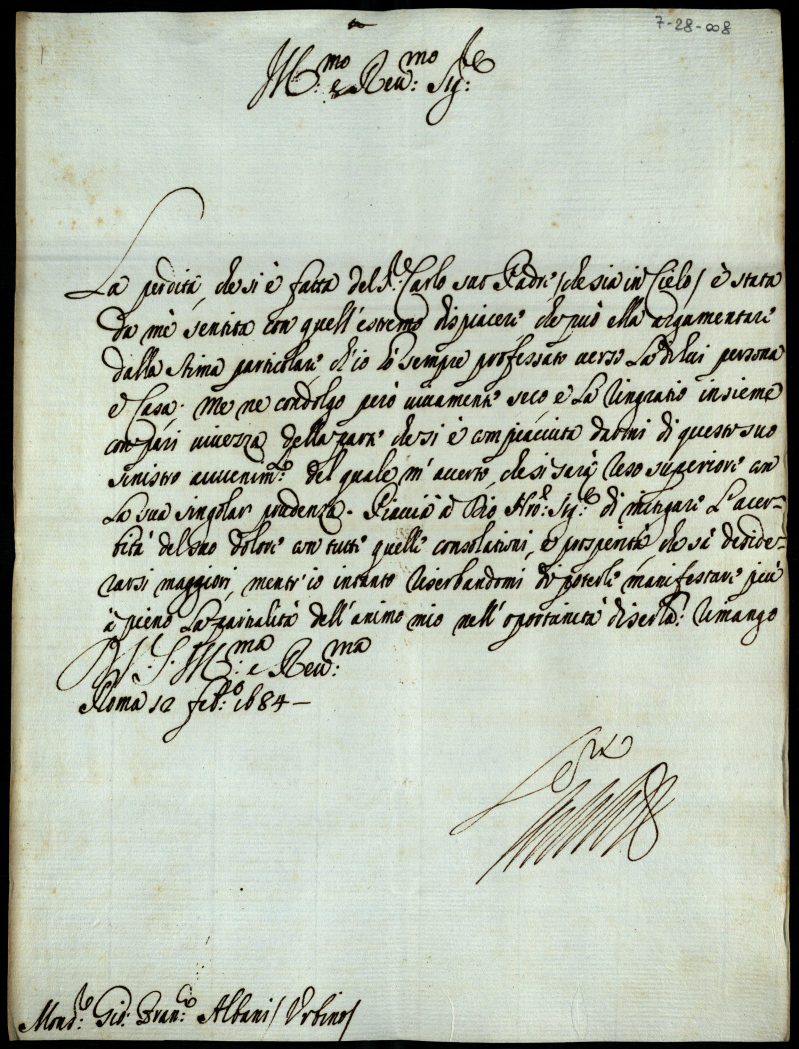 7-28-008
Ill.mo e Reu.mo Sig.re
La perdita, che si è fatta del S.r Carlo suo Padre / che sia in Cielo / è stata
da mè sentita con quell'estremo dispiacere che può ella argumentare
dalla stima particolare ch'io hò sempre professato verso la di lui persona
e Casa. Me ne condolgo però viuamente seco e la ringratio insieme
con pari viuezza della parte che si è compiaciuta darmi di questo suo
sinistro auuenim.to del quale m'accerto, che si sarà reso superiore con
la sua singolar prudenza. Piaccia à Dio Nro Sig.re di mitigare l'acer-
bità del suo dolore con tutte quelle consolationi, e prosperità, che sà deside-
rarsi maggiori, mentr'io intanto riserbandomi di poterle manifestare più
à pieno la partialità dell'animo mio nell'oportunità di seru.la: rimango
D. V. S. Ill.ma e Reu.ma
Roma 12 feb.o 1684 —
Mons.re Gio: Fran.co Albani / Urbino /